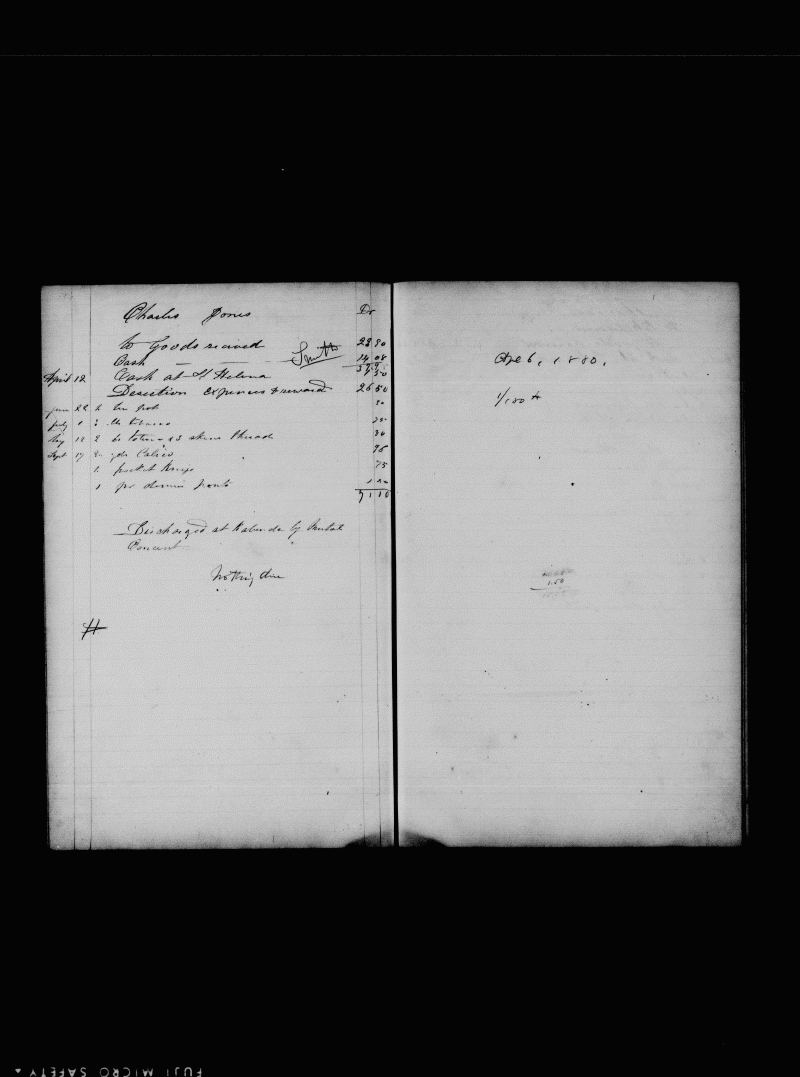 Charles Jones Dr
to Goods received 22 80
Cash Smith 14 08
April 12 Cash at St Helena 1 50
Desertion expenses & reward 26 50
June 22 1 tin pot 30
July 1 3 lbs tobacco
Aug 12 2 lb tobac & 3 skeins thread
Sept 17 yds Calico 96
1 pocket knife 75
1 pr denim pants
71 10
Discharged at by Mutual
Concent
Nothing due
H
Apl 6, 1880,
1/100 th
1.50
FUJI MICRO SAFETY